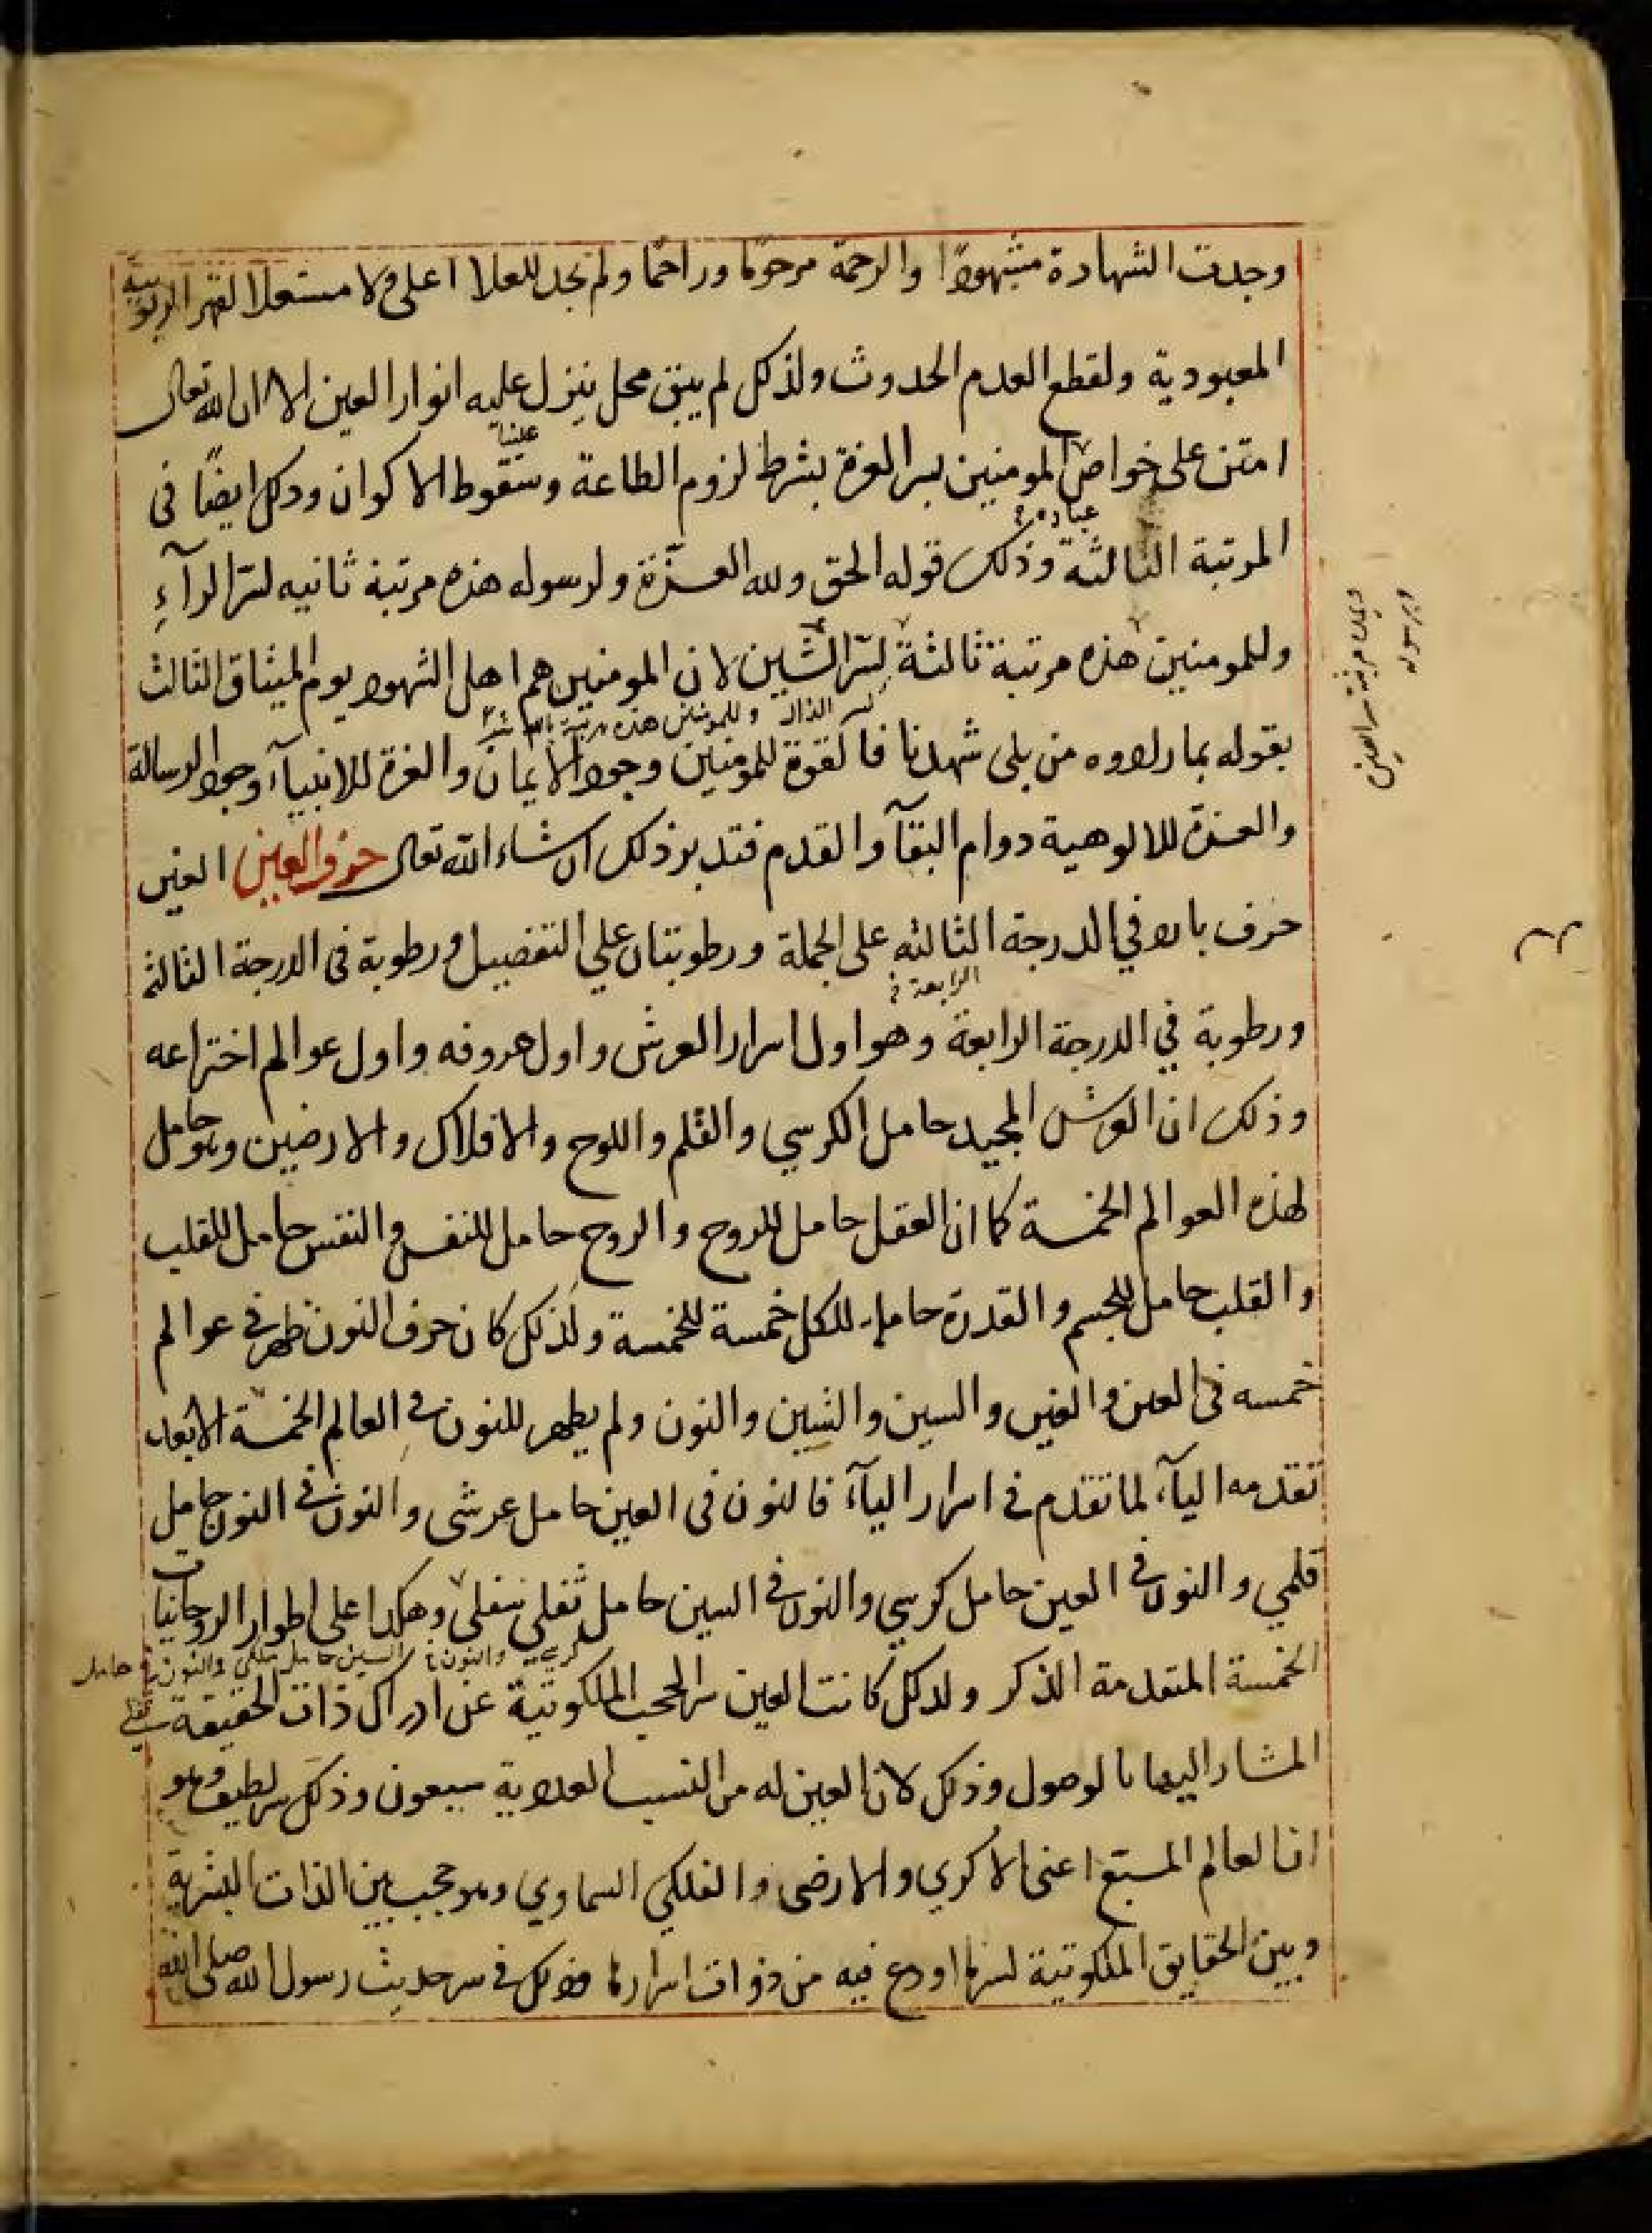 وجدت الشهادة مشهودًا والرحمة مرحومًا وراحمًا ولم نجد للعلا اعلى ولا مستعلا لقهر الربوبية
المعبودية ولقطع العدم الحدوث ولذلك لم يبق محل ينزل عليه انوار العين الا ان الله تعالى
امتن على خواص المومنين بسر العزة بشرط لزوم الطاعة وسقوط الاكوان وذلك ايضًا فى
المرتبة الثالثة وذلك قوله الحق ولله العزة ولرسوله هذه مرتبة ثانيه لسر الرآء
وللمومنين هذه مرتبة ثالثة لسر الشين لان المومنين هم اهل الشهود يوم الميثاق الثالث
بقوله من بلى شهدنا فالقوة للمومنين وجود الايمان والعزة للانبيآء وجود الرسالة
والعزة للالوهية دوام البقآ والقدم فتدبر ذلك ان شاء الله تعالى حرف العين العين
حرف بارد في الدرجة الثالثه على الجملة ورطوبتان على التفصيل ورطوبة فى الدرجة الثالثة
الرابعة
ورطوبة في الدرجة الرابعة وهو اول اسرار العرش واول حروفه واول عوالم اختراعه
وذلك ان العرش المجيد حامل الكرسي والقلم واللوح والافلاك والارضين وهو حامل
لهذه العوالم الخمسة كما ان العقل حامل للروح والروح حامل للنفس والنفس حامل للقلب
والقلب حامل للجسم والقدرة حامل للكل خمسة للخمسة ولذلك كان حرف النون ظهر فى عوالم
خمسه فى العين والغين والسين والشين والنون ولم يظهر للنون فى العالم الخمسة الا بعد
تقدمه اليآء لما تقدم فى اسرار اليآء فالنون فى العين حامل عرشى والنون فى النون حامل
قلمي والنون فى الغين حامل كرسي والنون فى السين حامل ثقلي سفلي وهكذا على اطوار الروحانيات
الخمسة المتقدمة الذكر ولذلك كانت العين سر الحجب الملكوتية عن ادراك ذات الحقيقة
المشار اليها بالوصول وذلك لان العين له من النسب العددية سبعون وذلك سر لطيف وهو
ان العالم المستبع اعنى الاكري والارضى والفلكي السماوي وهو حجب بين الذات البشرية
وبين الحقايق الملكوتية لسر ما اودع فيه من ذوات اسرارها وذلك فى سر حديث رسول الله صلى الله